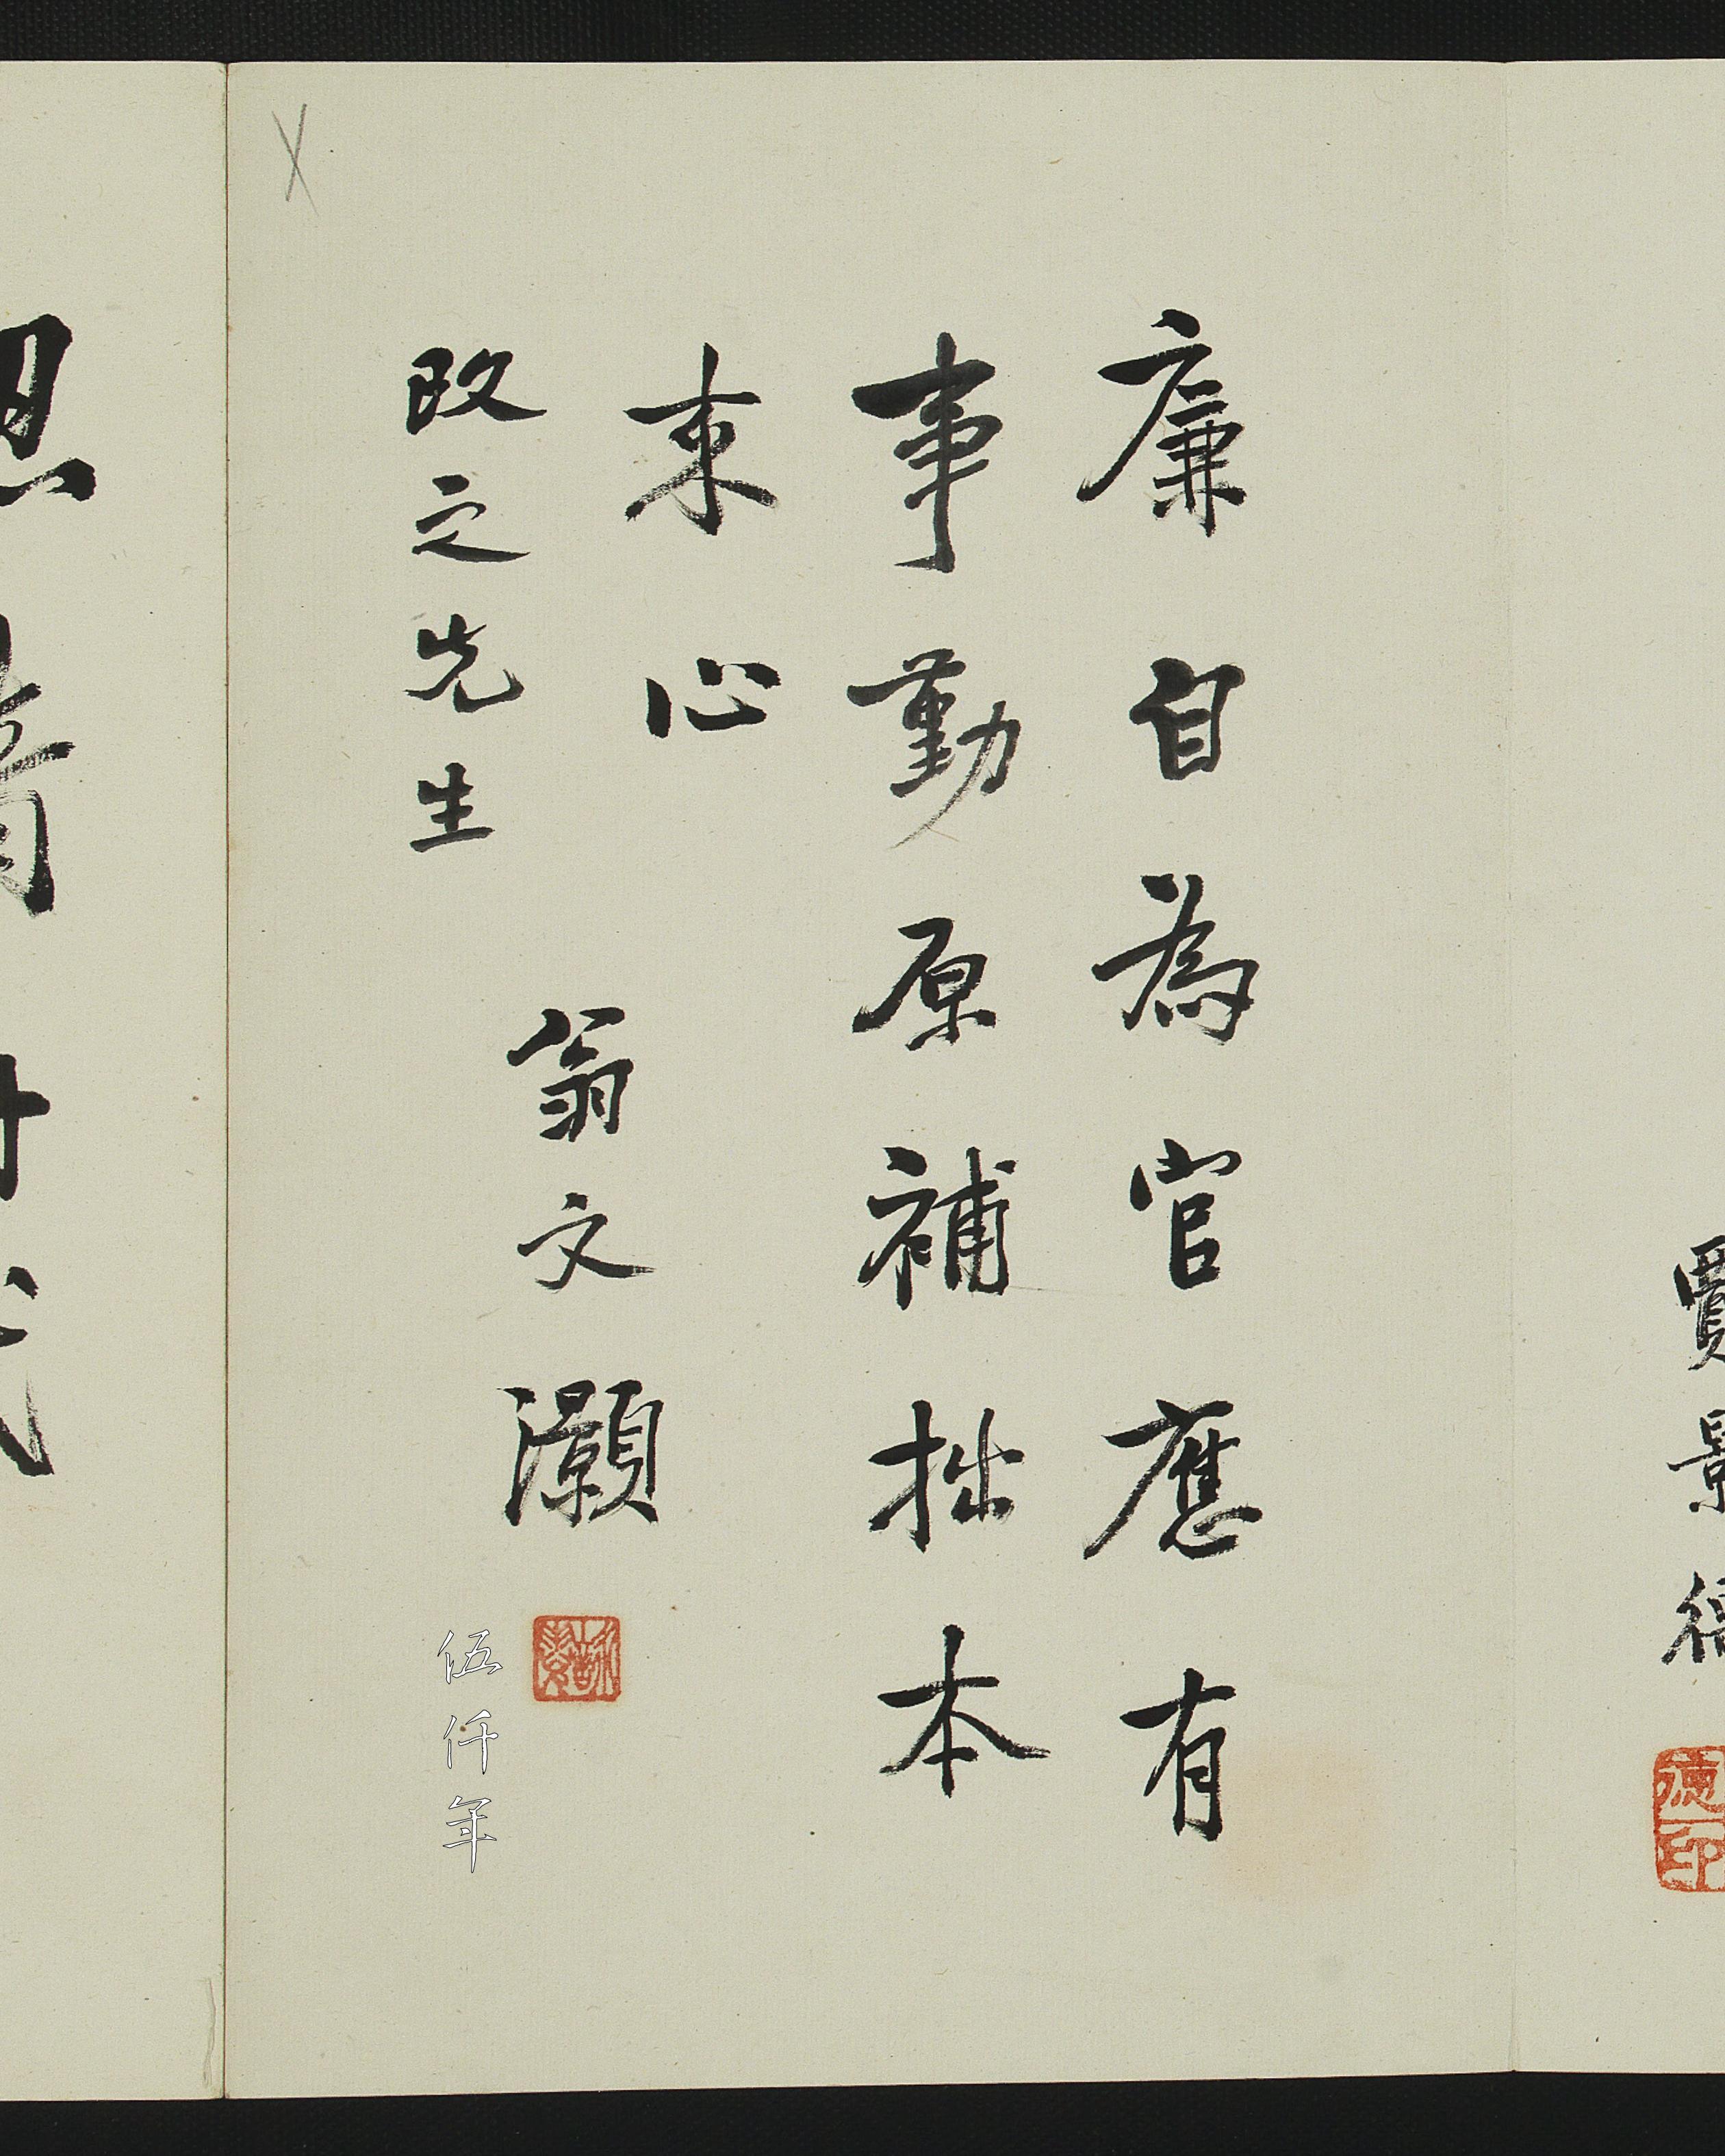 賈景德
德印
廉自為官應有
事勤原補拙本
来心
改之先生
翁文灝
詠霓
伍仟年